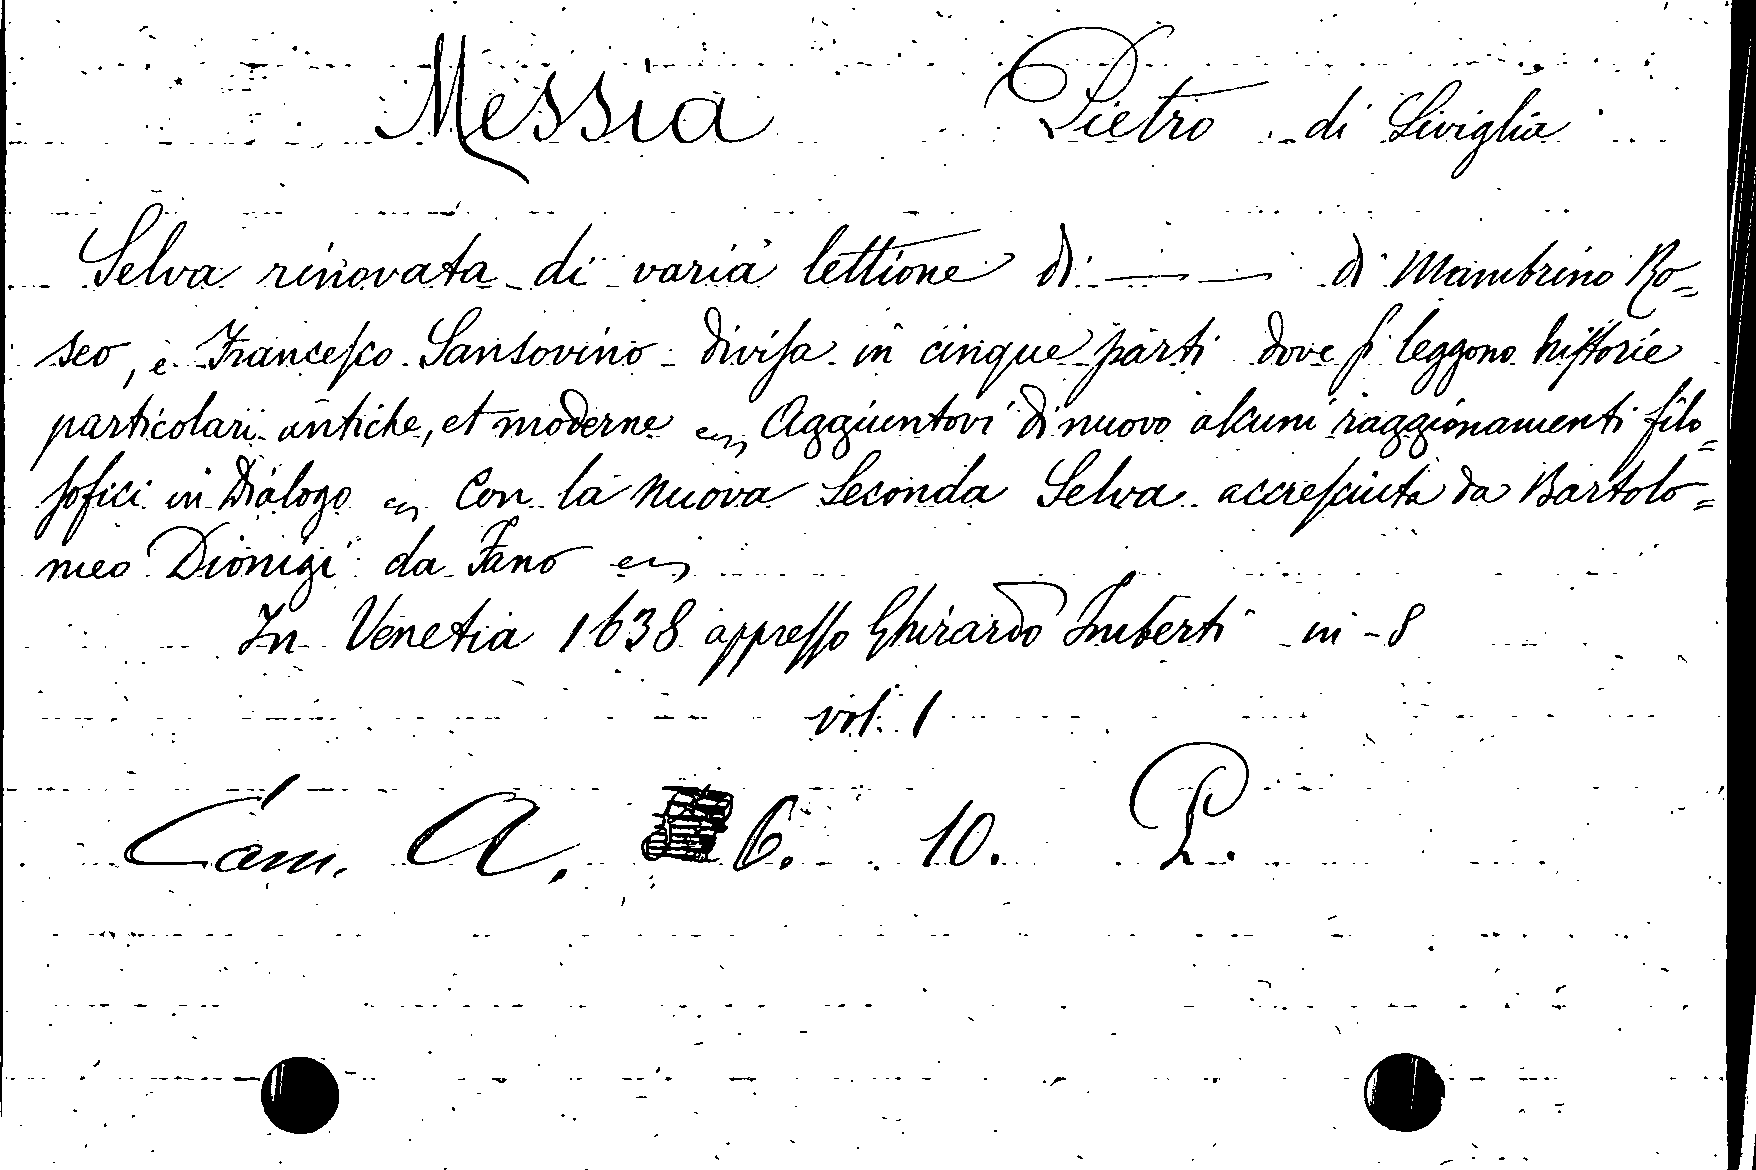 Messia Pietro di Siviglia
Selva rinovata di varia lettione di — — di Mambrino Ro=
seo, e Franceſco Sansovino diviſa in cinque parti dove ſi leggono hiſtorie
particolari antiche, et moderne Aggiuntovi di nuovo alcuni raggionamenti filo=
ſofici in Dialogo Con la nuova Seconda Selva accreſciuta da Bartolo=
meo Dionigi da Fano
In Venetia 1638 appreſſo Ghirardo Imberti in-8
vol. 1
Cam. A. 6. 10. P.